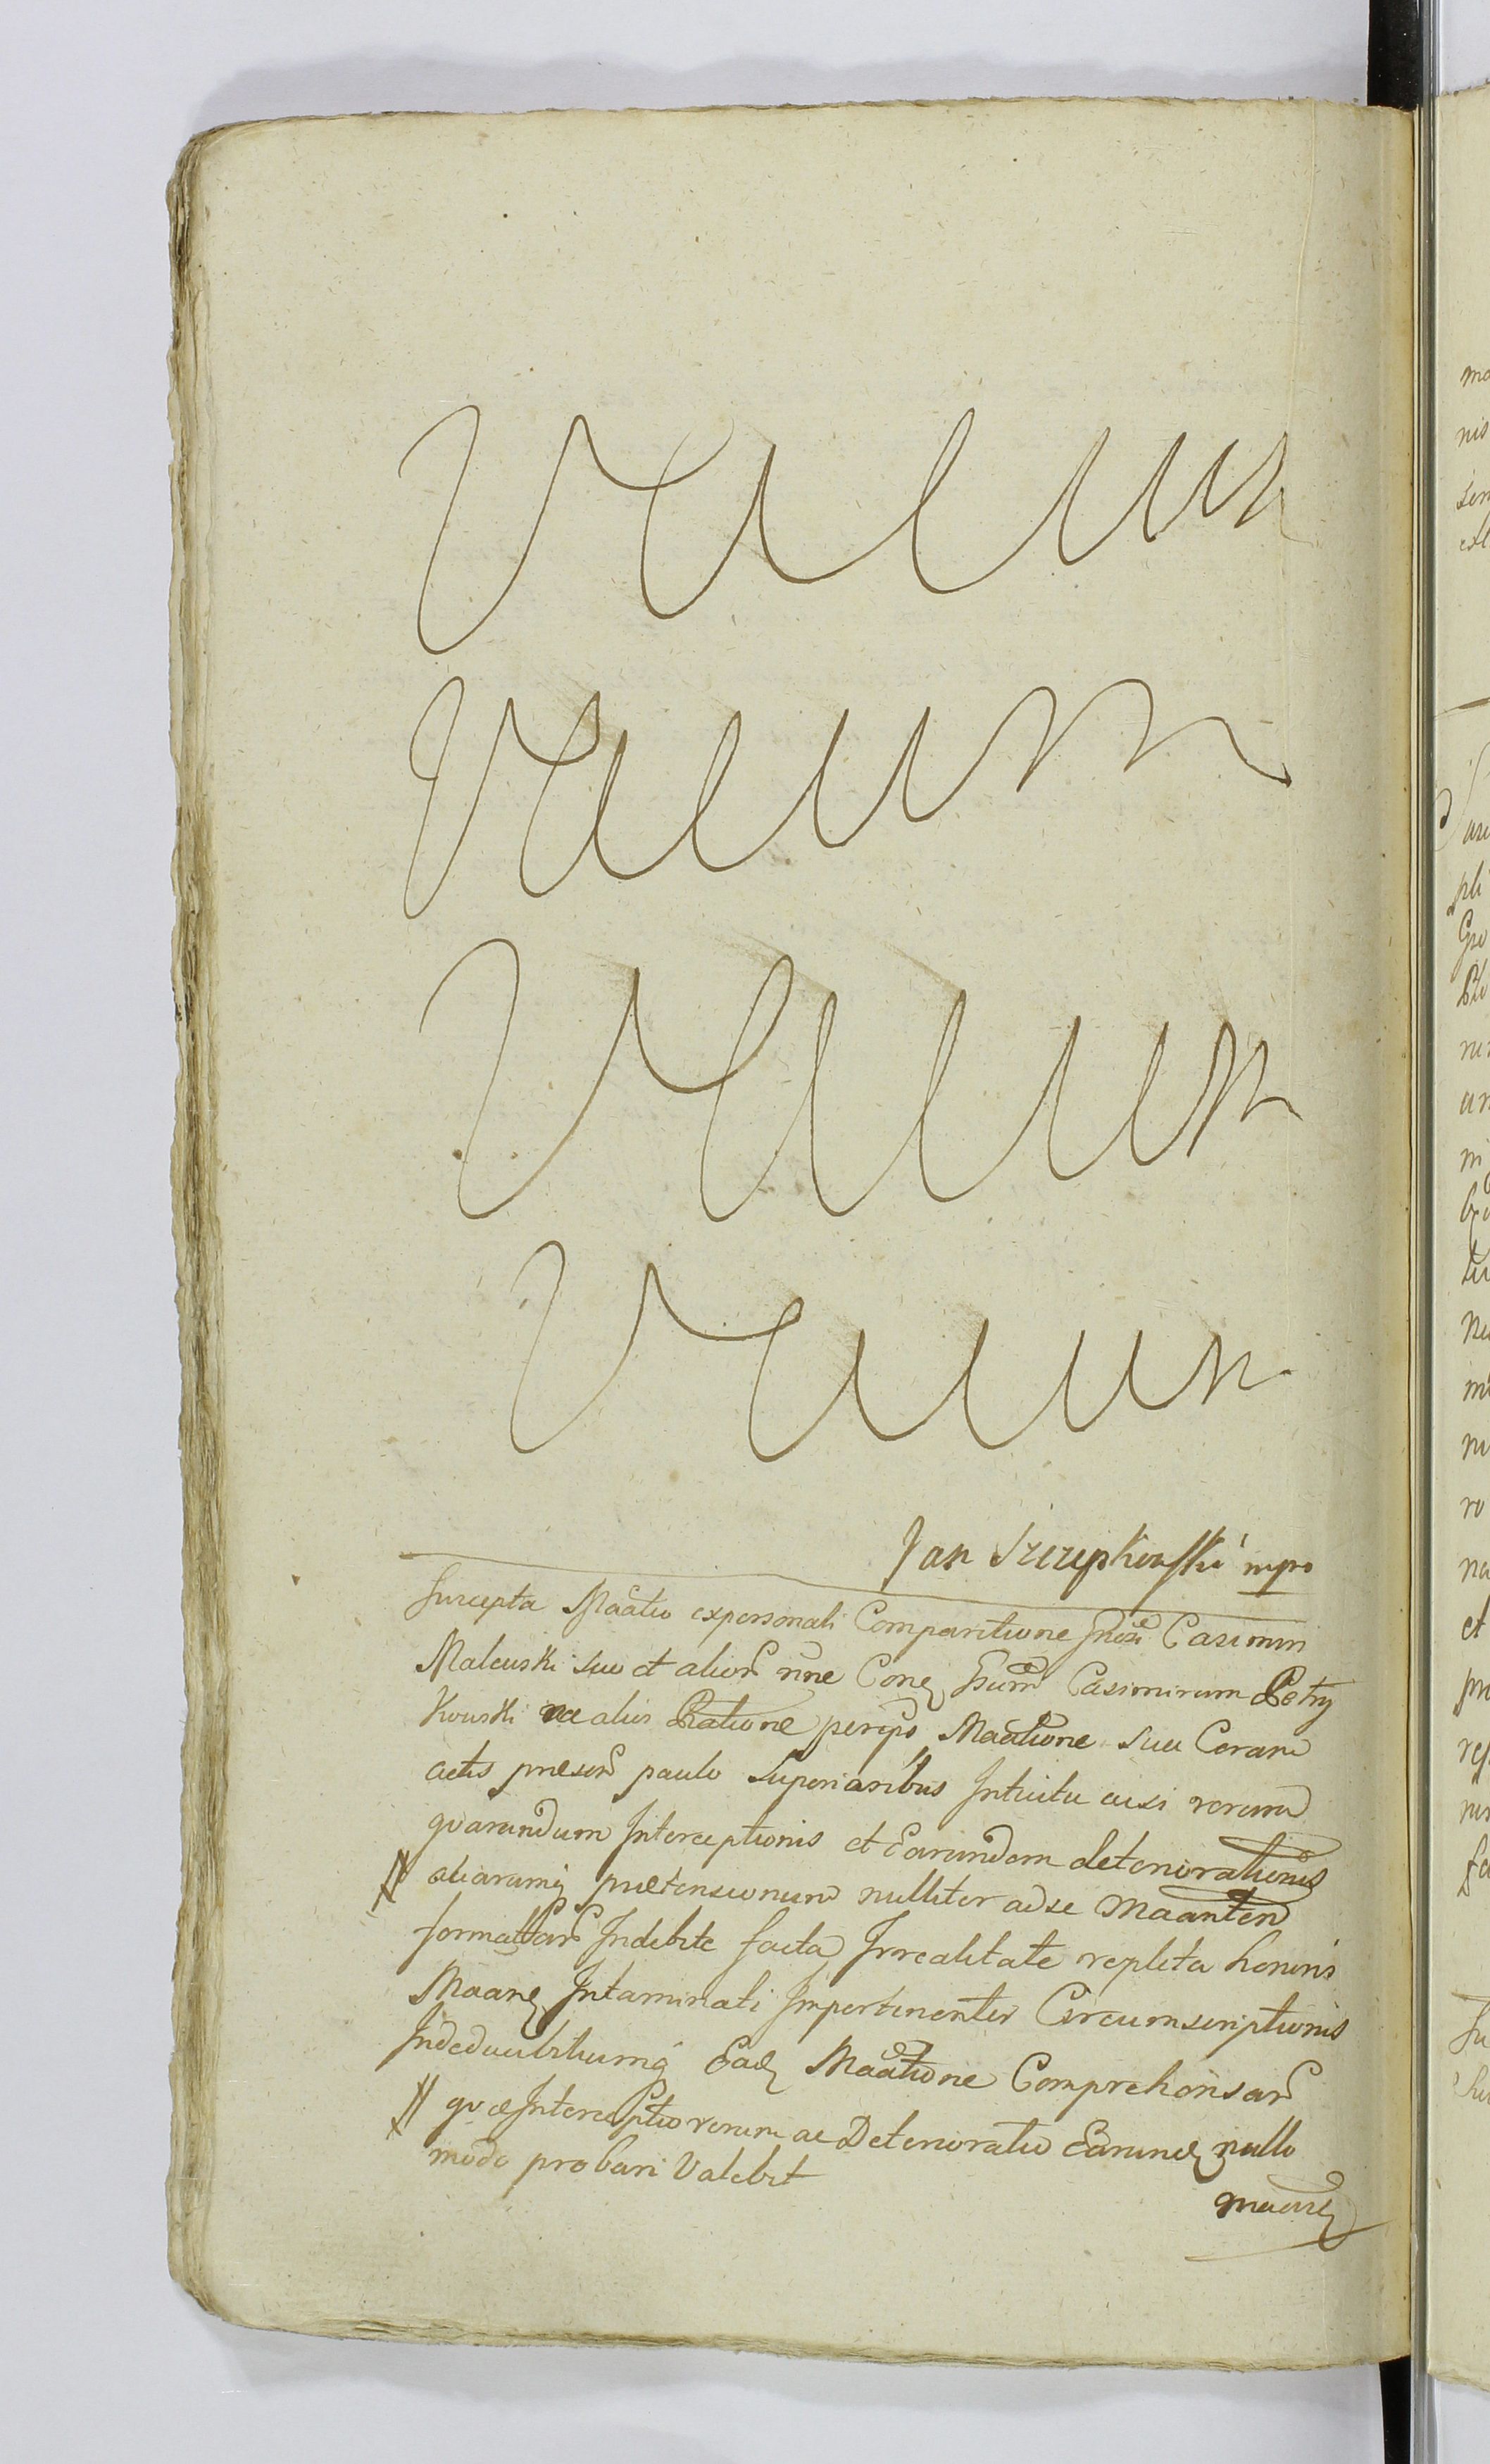 Vacuum
Vacuum
Vacuum
Vacuum
Jan Szczepkowski mpro
Suscepta Maatio expersonali Comparitione Gnosi Casimiri
Malewski suo et alior nne Conq Gsum Casimirum Petry
kowski ac alios Ratione per ipso Maatione sua Coram
actis praesen paulo Superioribus Intuitu cuisi rerum
quarundum Interceptionis et Earundem deteriorationis
aliarumq praetensionum nulliter ad se Maanten
format Indebite facta Irrealitate repleta honoris
Maanq Intaminati Impertinenter Circumscriptionis
Eadq Maatione Comprehensar
quae Interceptio rerum ac Deterioratio Earundq nullo
modo probari Valebit